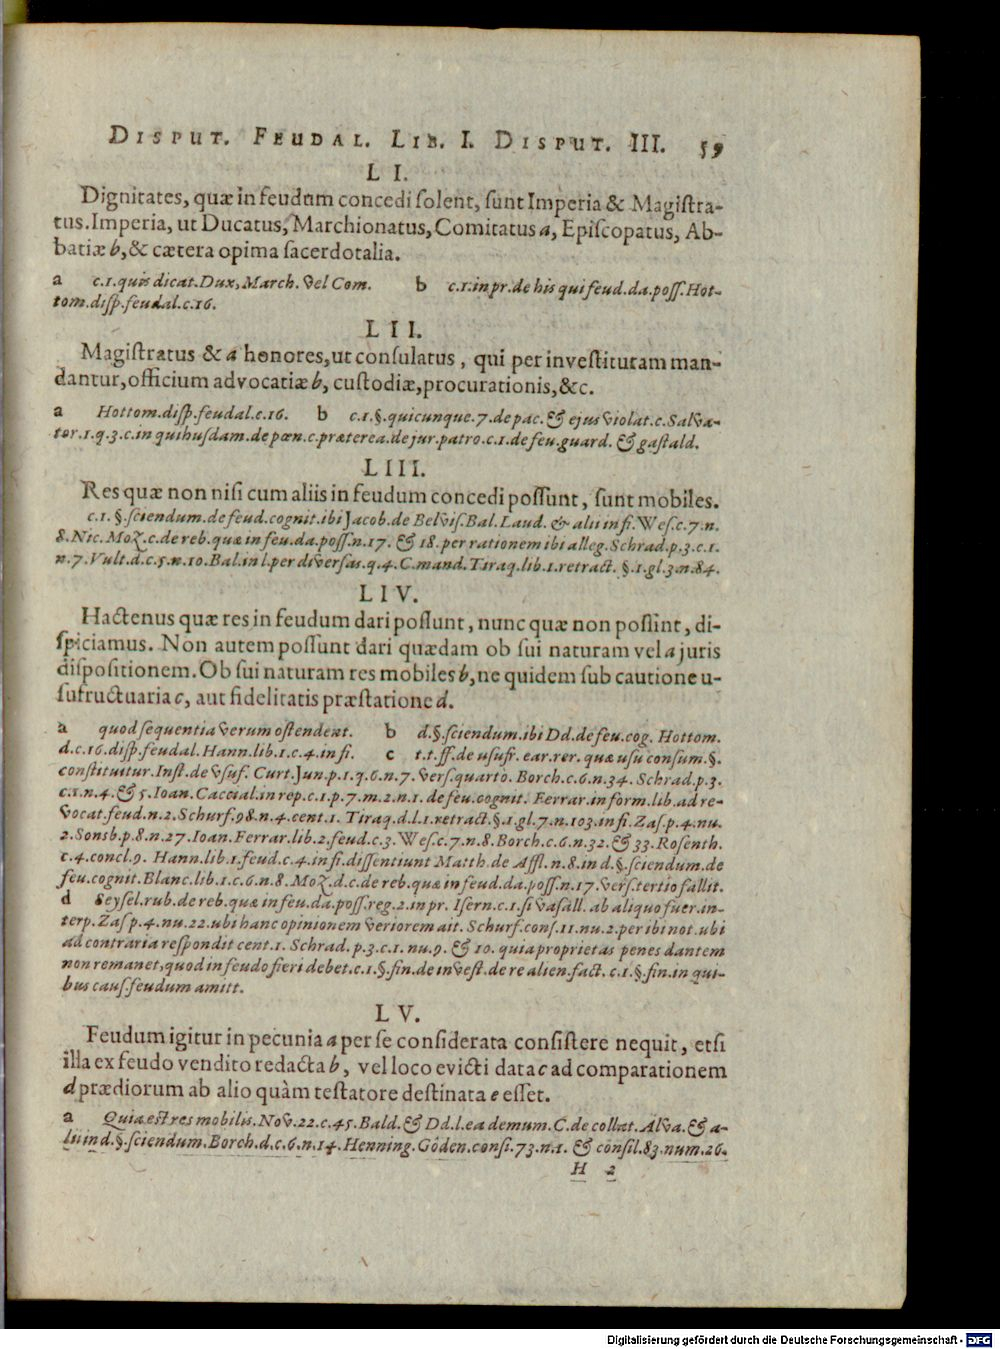 DISPUT. FEUDAL. LIB. I. DISPUT. III. 59
LI.
Dignitates, quæ in feudum concedi ſolent, ſunt Imperia & Magiſtra-
tus. Imperia, ut Ducatus, Marchionatus, Comitatus a, Epiſcopatus, Ab-
batiæ b, & cætera opima ſacerdotalia.
a c.1.quis dicat.Dux, March. vel Com. b c.1.in pr.de his qui feud.da.poſſ.Hot-
tom.diſp.feudal.c.16.
LII.
Magiſtratus & a honores, ut conſulatus, qui per inveſtituram man-
dantur, officium advocatiæ b, cuſtodiæ, procurationis, &c.
a Hottom.diſp.feudal.c.16. b c.1.§.quicunque.7.de pac. & ejus violat.c.Salva-
tor.1.q.3.c.in quibuſdam.de pœn.c.præterea.de jur.patro.c.1.de feu.guard. & gaſtald.
LIII.
Res quæ non niſi cum aliis in feudum concedi poſſunt, ſunt mobiles.
c.1.§.ſciendum.de feud.cognit.ibi Jacob.de Belviſ.Bal.Laud. & alii inſi.Weſ.c.7.n.
8.Nic.Moz.c.de reb.quæ in feu.da.poſſ.n.17. & 18.per rationem ibi alleg.Schrad.p.3.c.1.
n.7.Vult.d.c.5.n.10.Bal.in l.per diverſas.q.4.C.mand.Tiraq.lib.1.retract.§.1.gl.3.n.84.
LIV.
Hactenus quæ res in feudum dari poſſunt, nunc quæ non poſſint, di-
ſpiciamus. Non autem poſſunt dari quædam ob ſui naturam vel a juris
diſpoſitionem. Ob ſui naturam res mobiles b, ne quidem ſub cautione u-
ſufructuaria c, aut fidelitatis præſtatione d.
a quod ſequentia verum oſtendent. b d.§.ſciendum.ibi Dd.de feu.cog. Hottom.
d.c.16.diſp.feudal.Hann.lib.1.c.4.in fi. c t.t.ff.de uſufr.ear.rer.quæ uſu conſum.§.
conſtituitur.Inſt.de vſuf. Curt.Jun.p.1.q.6.n.7.verſ.quarto. Borch.c.6.n.34. Schrad.p.3.
c.1.n.4. & 5.Ioan.Caccial.in rep.c.1.p.7.m.2.n.1.de feu.cognit. Ferrar.in form.lib.ad re-
vocat.feud.n.2.Schurf.98.n.4.cent.1. Tiraq.d.l.1.retract.§.1.gl.7.n.103.in fi.Zaſ.p.4.nu.
2.Sonsb.p.8.n.27.Ioan.Ferrar.lib.2.feud.c.3.Weſ.c.7.n.8.Borch.c.6.n.32. & 33.Roſenth.
c.4.concl.9. Hann.lib.1.feud.c.4.in fi.diſſentiunt Matth.de Affl.n.8.in d.§.ſciendum.de
feu.cognit.Blanc.lib.1.c.6.n.8.Moz.d.c.de reb.quæ in feud.da.poſſ.n.17.verſ.tertio fallit.
d Seyſel.rub.de reb.quæ in feu.da.poſſ.reg.2.in pr. Iſern.c.1.ſi vaſall.ab aliquo fuer.in-
terp.Zaſ p.4.nu.22.ubi hanc opinionem veriorem ait. Schurf.conſ.11.nu.2.per ibi not.ubi
ad contraria reſpondit cent.1. Schrad.p.3.c.1.nu.9. & 10. quia proprietas penes dantem
non remanet, quod in feudo fieri debet.c.1.§.fin.de inveſt.de re alien.fact. c.1.§.fin.in qui-
bus cauſ.feudum amitt.
LV.
Feudum igitur in pecunia a per ſe conſiderata conſiſtere nequit, etſi
illa ex feudo vendito redacta b, vel loco evicti data c ad comparationem
d prædiorum ab alio quàm teſtatore deſtinata e eſſet.
a Quia eſt res mobilis.Nov.22.c.45.Bald. & Dd.l.ea demum.C.de collat.Alva. & a-
lii in d.§.ſciendum.Borch.d.c.6.n.14.Henning.Göden.conſi.73.n.1. & conſil.83.num.26.
H 2
Digitalisierung gefördert durch die Deutsche Forschungsgemeinschaft - DFG